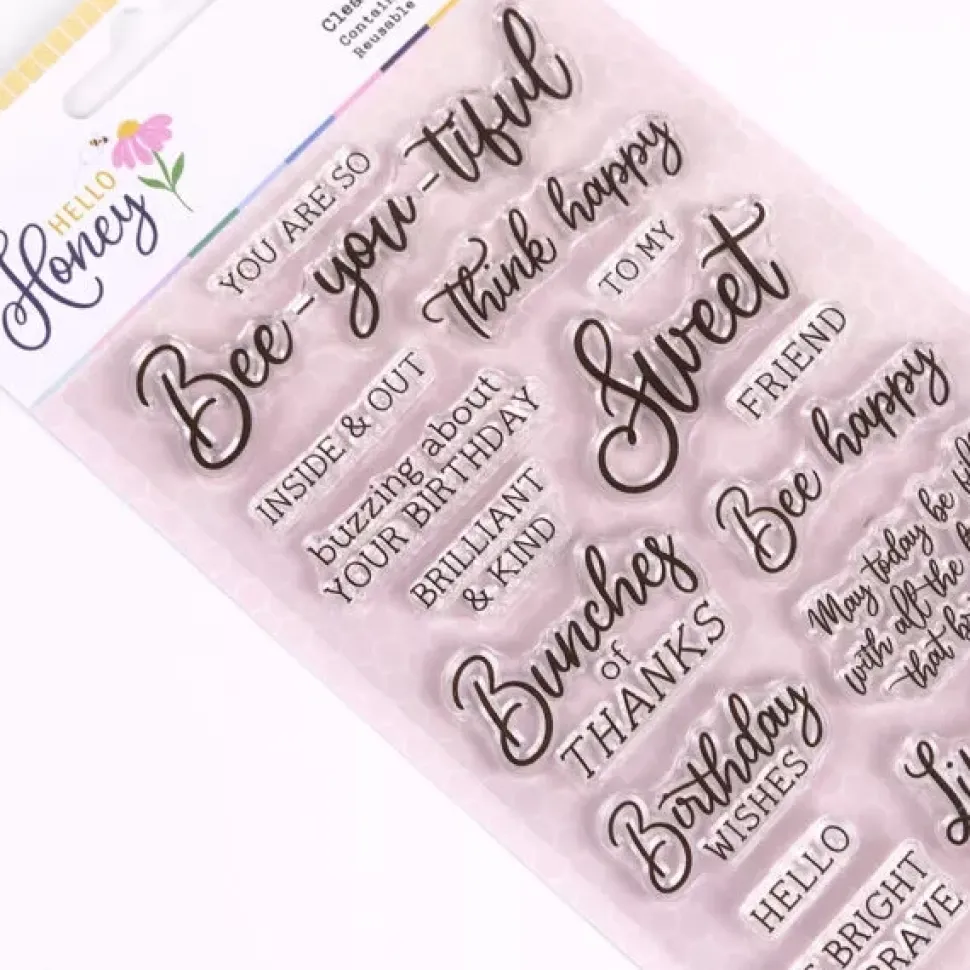 Contain
Reusable
HELLO
Honey
YOU ARE SO
Bee-you-tiful
Think happy
TO MY
Sweet
FRIEND
INSIDE & OUT
buzzing about
YOUR BIRTHDAY
BRILLIANT
& KIND
Bee happy
May today be
with all the
that
Bunches
of
THANKS
Birthday
WISHES
HELLO
BRIGHT